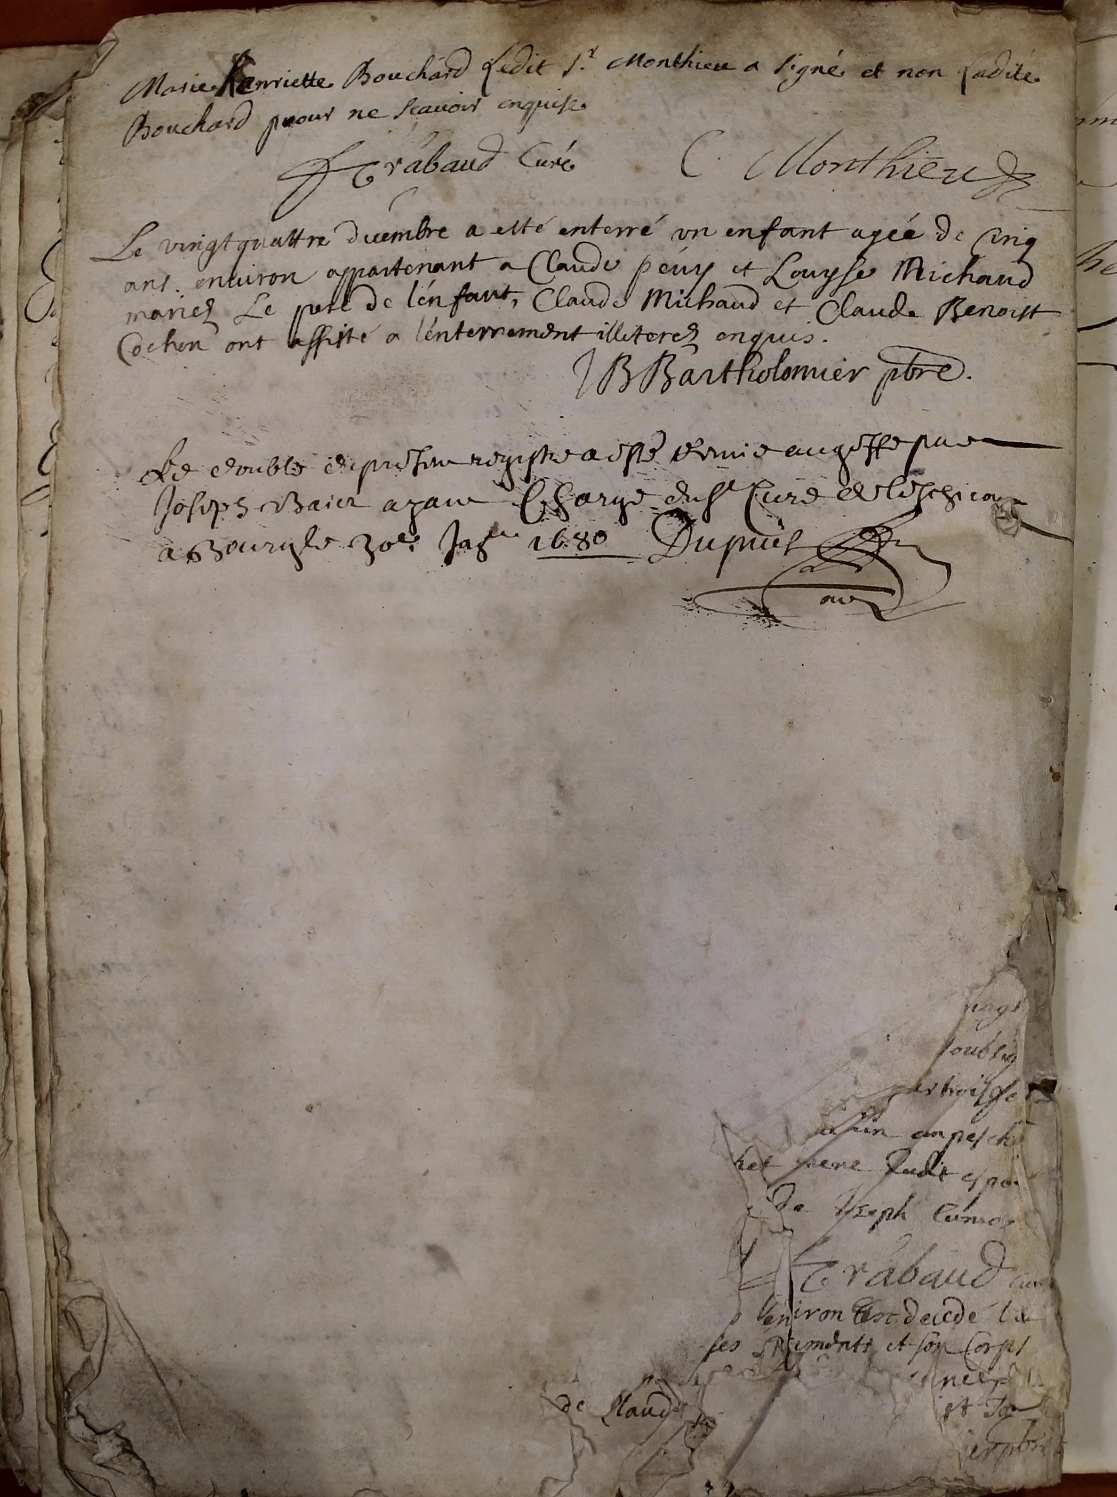 Marie henriette Bouchard Ledit Sr. Monthieu a signé et non Ladite
Bouchard pour ne scavoir enquise
Trabaud Curé C. Monthieu
Le vingtquattre decembre a esté enterré un enfant ageé de Cinq
ans environ appartenant a Claude peuy et Louyse Michaud
mariez Le pere de l'enfant, Claude Michaud et Claude Benoist
Cochon ont assisté a l'enterrement illiterez enquis.
JB Bartholomier pbre.
Le double du present registre a esté remis au greffe par
Joseph Baiet ayant Charge du Sr Curé de
a Bourg le 30e. 1680 Dupuis
vingt
empesché
mere dudit
de Joseph
Trabaud
environ est decedé
ses et son Corps
de Claud